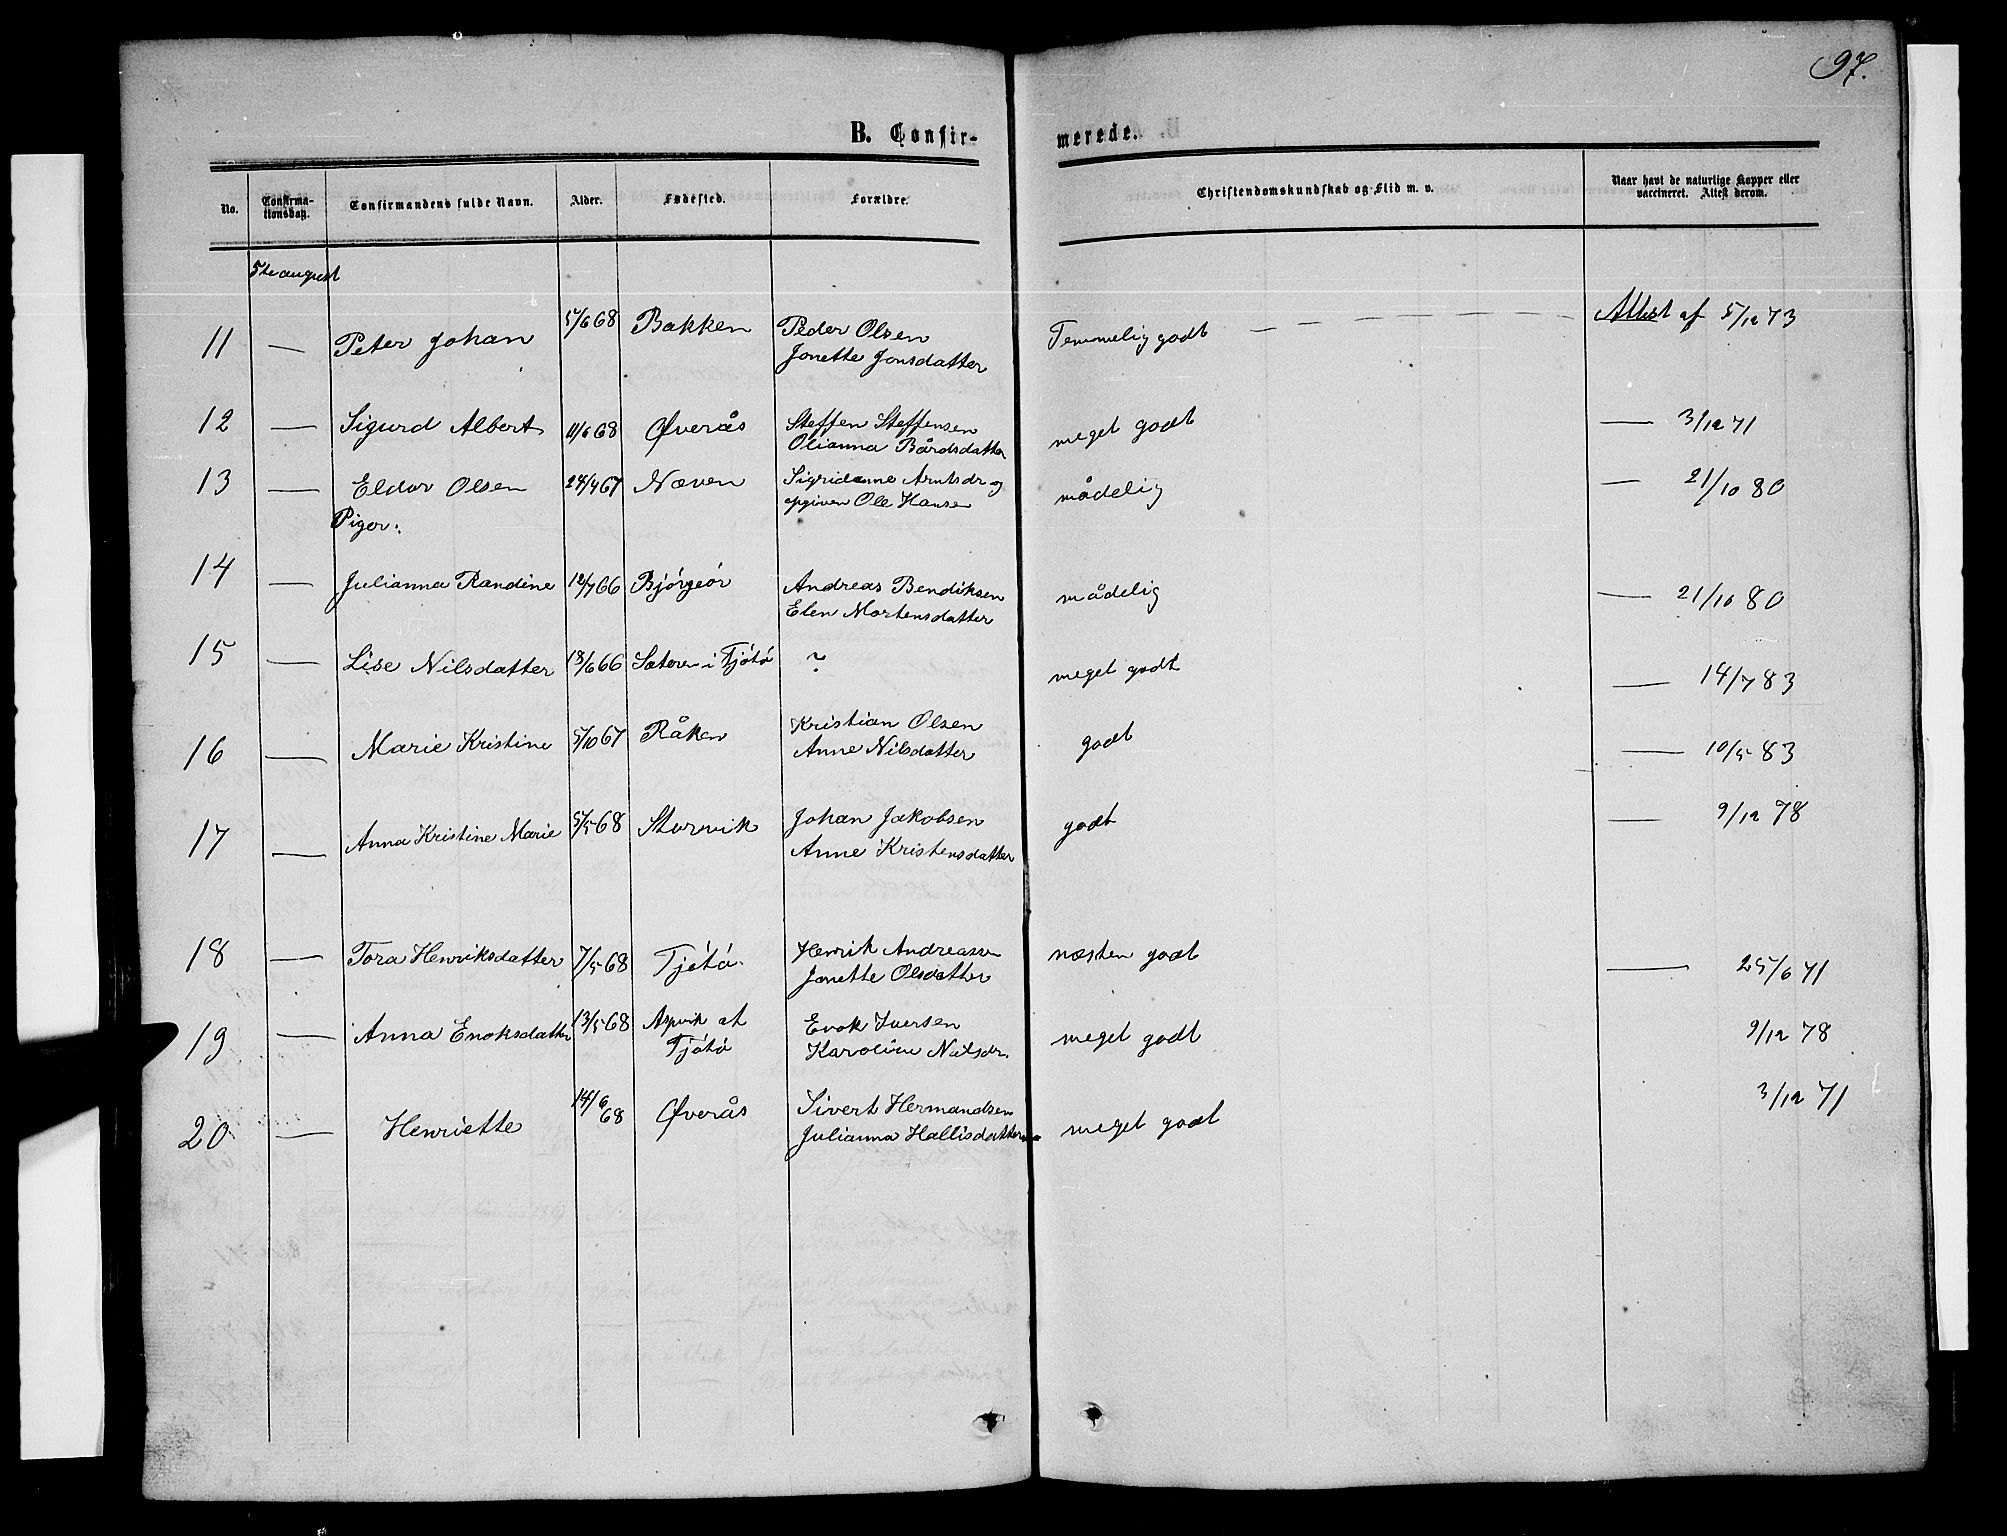 97.
B. Confir-
merede.
No.
Confirma-
tionsdag.
Confirmandens fulde Navn.
Alder.
Fødested.
Forældre.
Christendomskundskab og Flid m. v.
Naar havt de naturlige Kopper eller
vaccineret. Attest derom.
5te august
11 — Peter Johan 5/6 68 Bakken Peder Olsen Temmelig godt — — — — — — — Attest af 5/12 73
Jonette Jonsdatter
12 — Sigurd Albert 11/6 68 Øverås Steffen Steffensen meget godt — 3/12 71
Olianna Bårdsdatter
13 — Eldor Olsen 24/4 67 Næven Sigridanne Arntsdr og mådelig — 21/10 80
opgiven Ole Hansen
Piger:
14 — Julianna Randine 12/7 66 Bjørgeór Andreas Bendiksen mådelig — 21/10 80
Elen Mortensdatter
15 — Lise Nilsdatter 18/6 66 Sæteren i Tjøtø ? meget godt — 14/7 83
16 — Marie Kristine 5/10 67 Råken Kristian Olsen godt — 10/5 83
Anne Nilsdatter
17 — Anna Kristine Marie 5/5 68 Storvik Johan Jakobsen godt — 9/12 78
Anne Kristensdatter
18 — Tora Henriksdatter 7/5 68 Tjøtø Henrik Andreassen næsten godt — 25/6 71
Jonette Olsdatter
19 — Anna Enoksdatter 13/5 68 Aspvik at Enok Iversen meget godt 9/12 78
Tjøtø Karoline Nilsdr.
20 — Henriette 14/6 68 Øverås Sivert Hermandsen meget godt 3/12 71
Julianna Hallisdatter